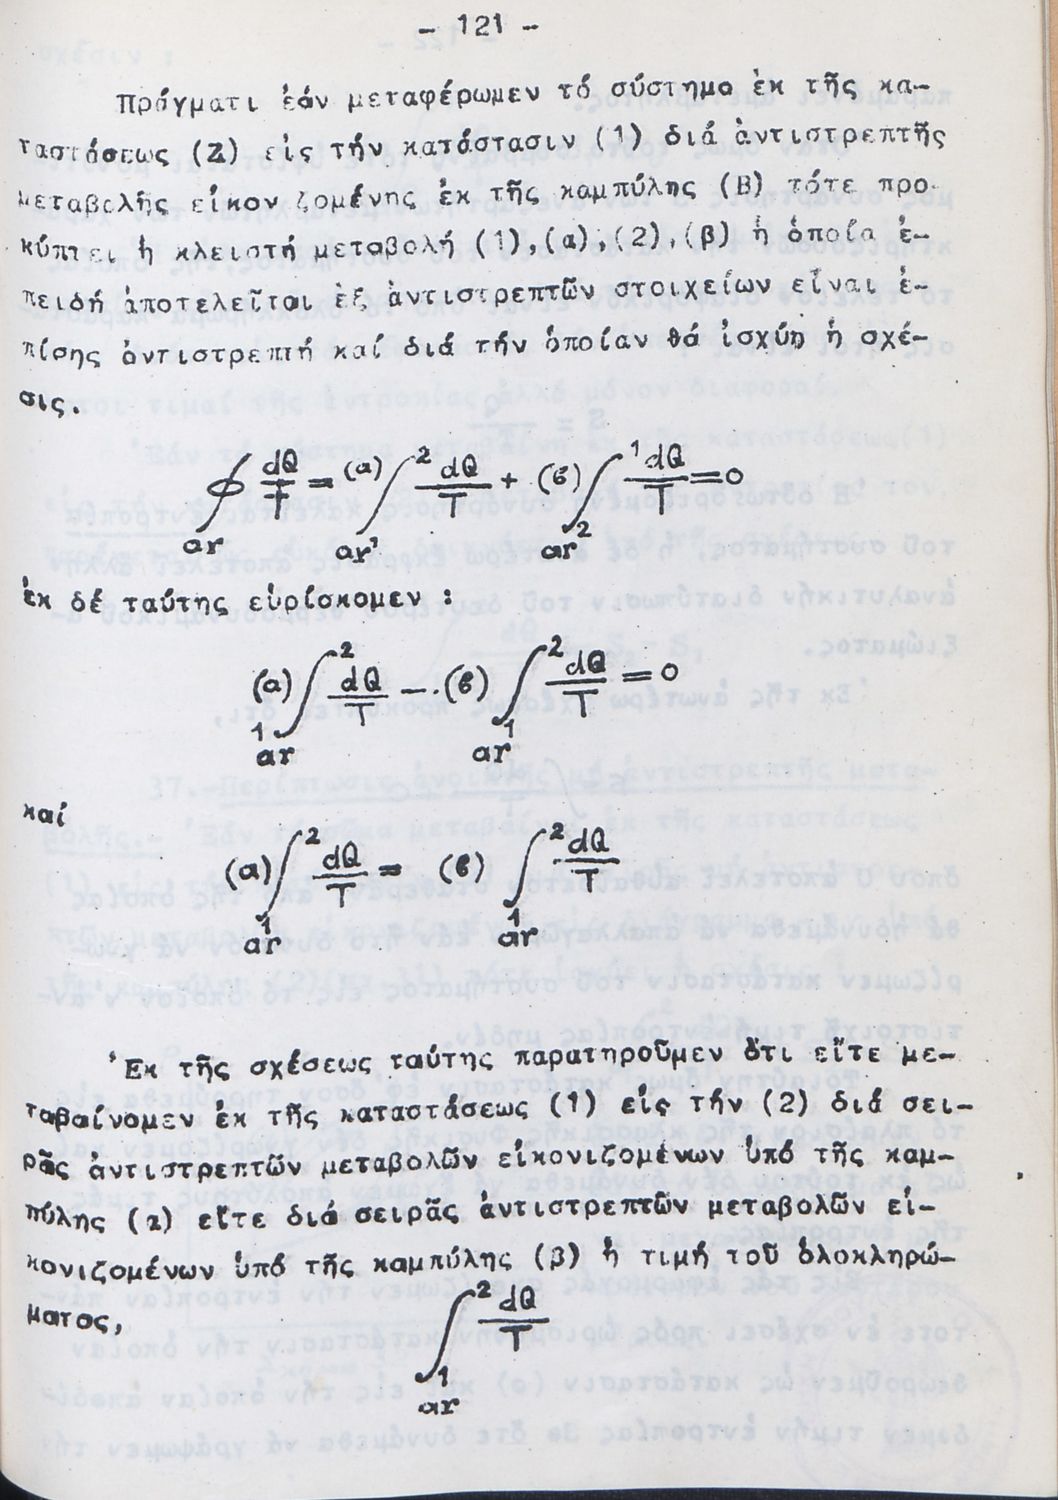 - 121 -
Πράγματι ἐάν μεταφέρωμεν τό σύστημα ἐκ τῆς κα-
ταστάσεως (2) εἰς τήν κατάστασιν (1) διά ἀντιστρεπτῆς
μεταβολῆς εἰκονιζομένης ἐκ τῆς καμπύλης (Β) τότε προ-
κύπτει ἡ κλειστή μεταβολή (1),(α),(2),(β) ἡ ὁποία ἐ-
πειδή ἀποτελεῖται ἐξ ἀντιστρεπτῶν στοιχείων εἶναι ἐ-
πίσης ἀντιστρεπτή καί διά τήν ὁποίαν θά ἰσχύῃ ἡ σχέ-
σις.
∮ar dQ/T = (α) ∫ar1 2 dQ/T + (β) ∫ar2 1 dQ/T = 0
ἐκ δέ ταύτης εὑρίσκομεν :
(α) ∫1 ar 2 dQ/T - (β) ∫1 ar 2 dQ/T = 0
καί
(α) ∫1 ar 2 dQ/T = (β) ∫1 ar 2 dQ/T
Ἐκ τῆς σχέσεως ταύτης παρατηροῦμεν ὅτι εἴτε με-
ταβαίνομεν ἐκ τῆς καταστάσεως (1) εἰς τήν (2) διά σει-
ρᾶς ἀντιστρεπτῶν μεταβολῶν εἰκονιζομένων ὑπό τῆς καμ-
πύλης (α) εἴτε διά σειρᾶς ἀντιστρεπτῶν μεταβολῶν εἰ-
κονιζομένων ὑπό τῆς καμπύλης (β) ἡ τιμή τοῦ ὁλοκληρώ-
ματος,
∫1 ar 2 dQ/T